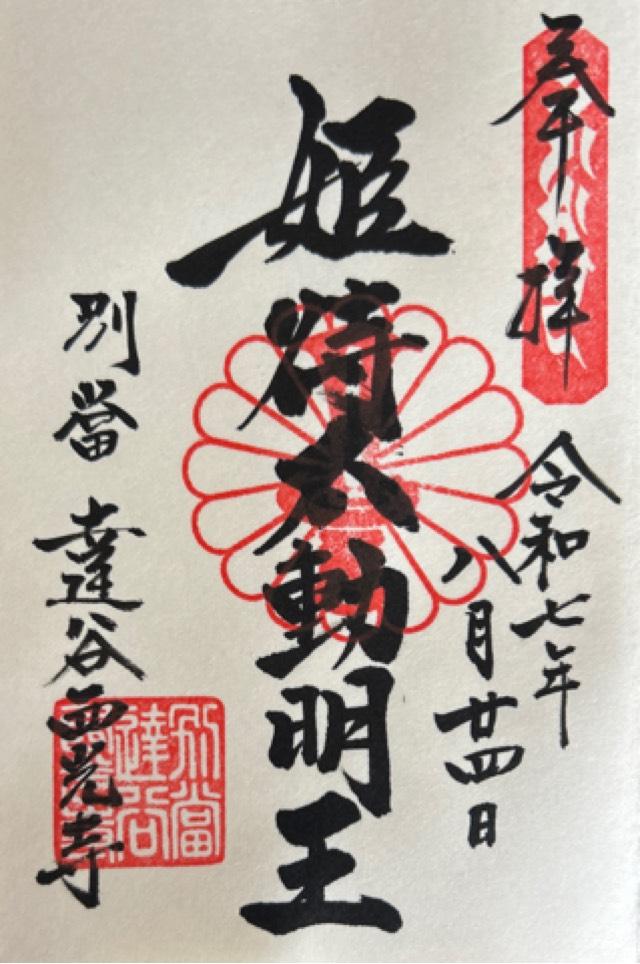 奉拝
令和七年
八月廿四日
姫待不動明王
別當 達谷西光寺
別當
達谷